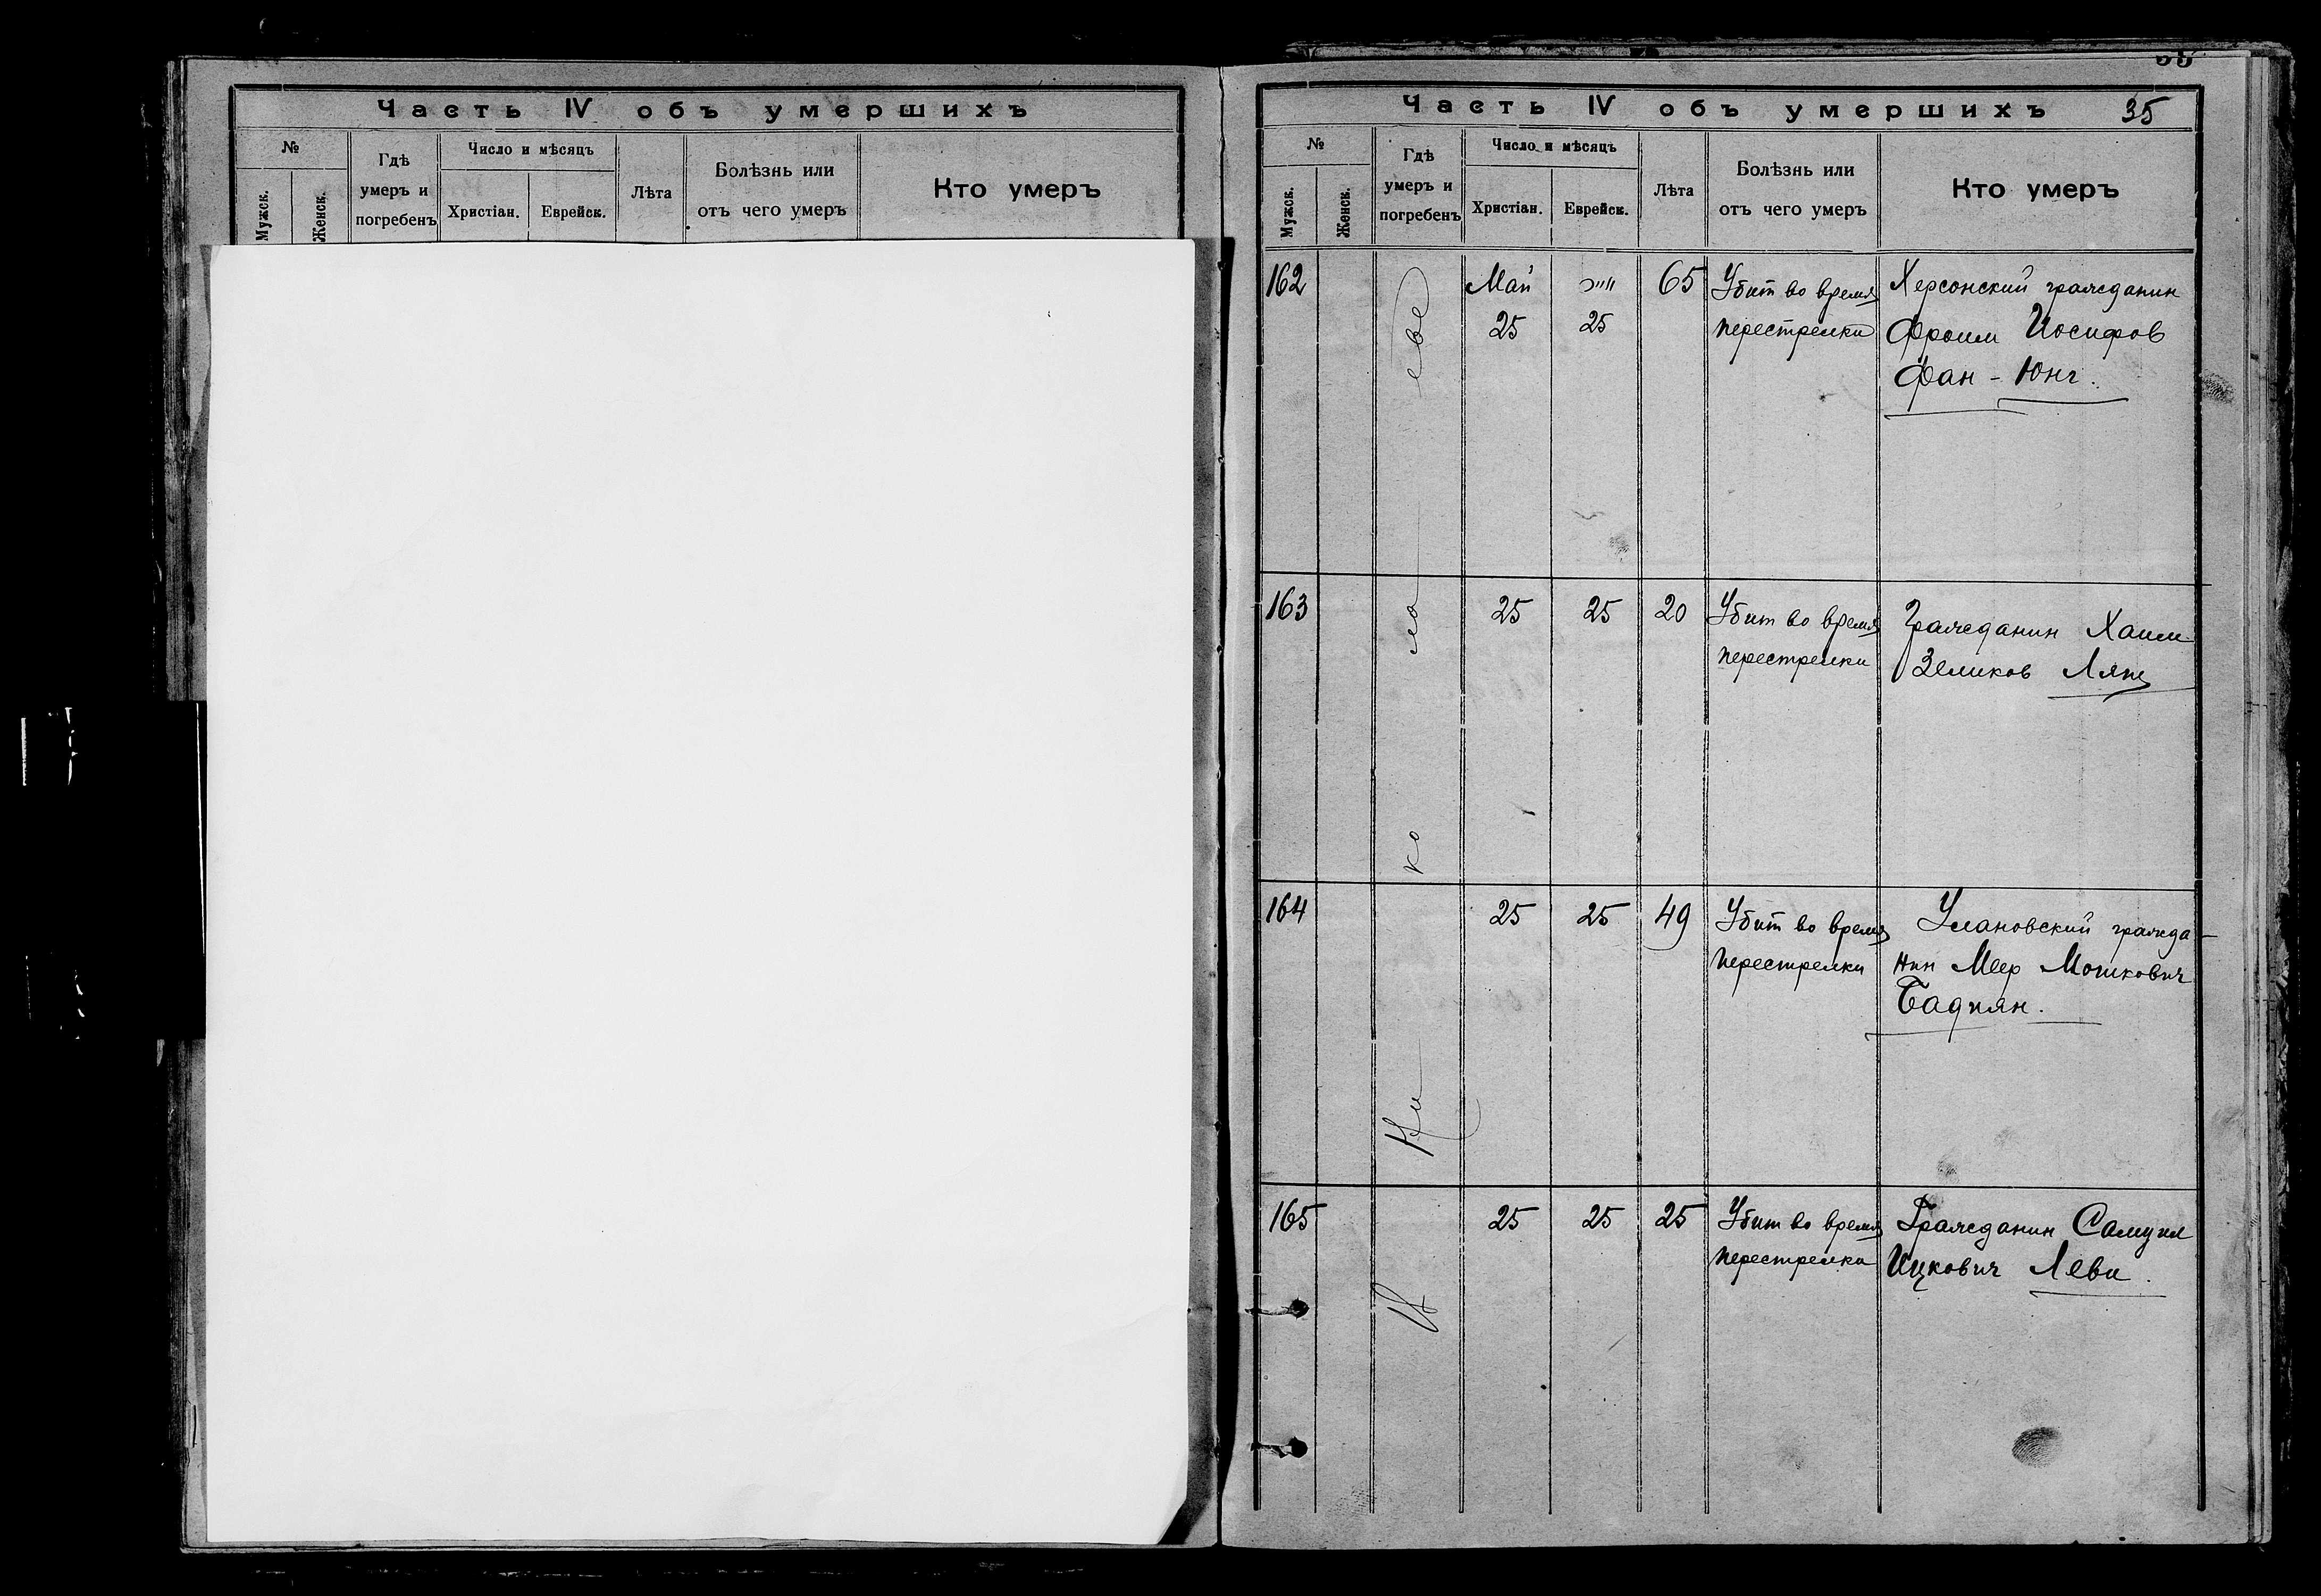 Часть IV объ умершихъ
№
Мужск.
Женск.
Гдѣ
умеръ и
погребенъ
Число и мѣсяцъ
Христіан.
Еврейск.
Лѣта
Болѣзнь или
отъ чего умеръ
Кто умеръ
Часть IV объ умершихъ 35
№
Мужск.
Женск.
Гдѣ
умеръ и
погребенъ
Число и мѣсяцъ
Христіан.
Еврейск.
Лѣта
Болѣзнь или
отъ чего умеръ
Кто умеръ
162
Май
25
25
65
Убит во время
перестрелки
Херсонский гражданин
Фроим Иосифов
Фан-Юнг.
163
25
25
20
Убит во время
перестрелки
Гражданин Хаим
Зеликов Ляпе
164
25
25
49
Убит во время
перестрелки
Улановский гражда
нин Меер Мошкович
Бадиян.
165
25
25
25
Убит во время
перестрелки
Гражданин Самуил
Ицкович Леви.
В Николаеве